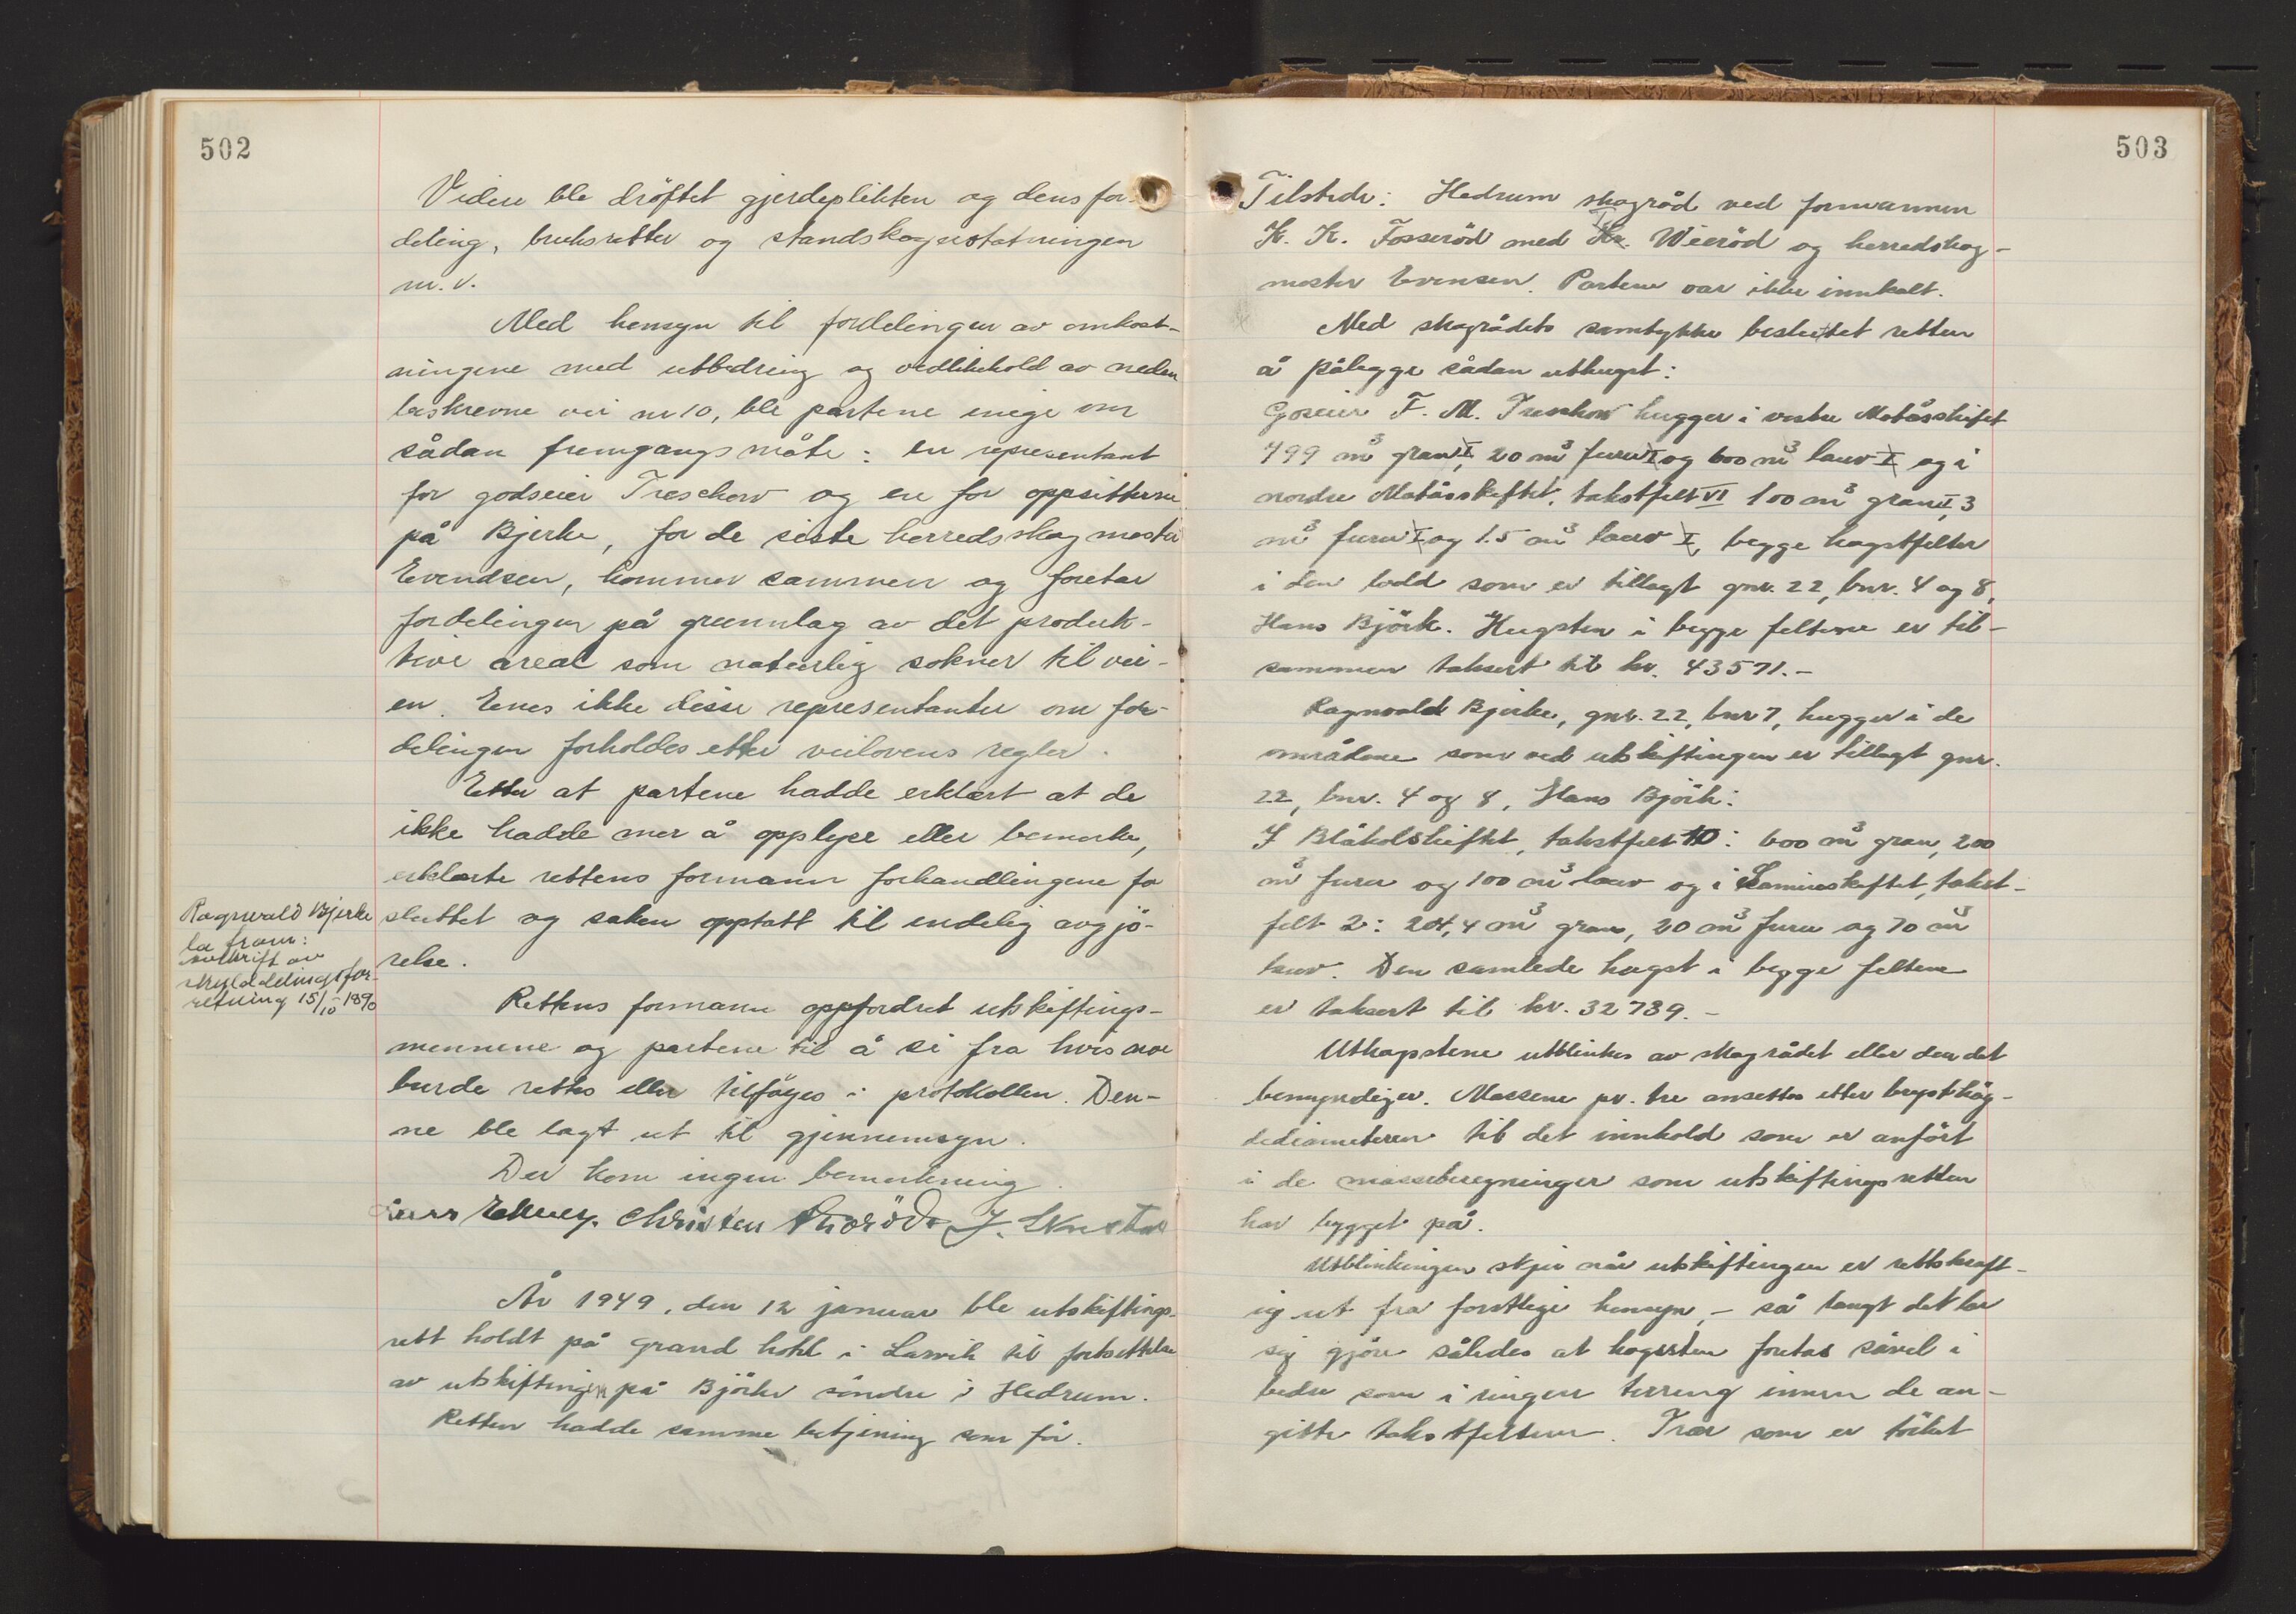 502
Videre ble dröftet gjerdeplikten og dens for-
deling, bruksretter og standskogserstatningen
m.v.
Med hensyn til fordelingen av omkost-
ningene med utbedring og vedlikehold av neden
beskrevne vei nr 10, ble partene enige om
sådan fremgangsmåte: en representant
for godseier Treschow og en for oppsitterne
på Bjerke, for de siste herredsskogmester
Evendsen, kommer sammen og foretar
fordelingen på grunnlag av det produk-
tive areal som naturlig sokner til vei-
en. Enes ikke disse representanter om for-
delingen forholdes etter veilovens regler.
Etter at partene hadde erklært at de
ikke hadde mer å opplyse eller bemerke,
erklærte rettens formann forhandlingene for
sluttet og saken opptatt til endelig avgjö-
relse.
Ragnvald Bjerke
la fram:
utskrift av
skylddelingsfor-
retning 15/10-1890
Rettens formann oppfordret utskiftings-
mennene og partene til å si fra hvis noe
burde rettes eller tilföyes i protokollen. Den-
ne ble lagt ut til gjennemsyn.
Der kom ingen bemerkning.
Christen J.
År 1949, den 12 januar ble utskiftings-
rett holdt på Grand hotel i Larvik til fortsettelse
av utskiftingen på Björke söndre i Hedrum.
Retten hadde samme betjening som för.
503
Tilstede: Hedrum skogråd ved formannen
K. K. Fosseröd med Wieröd og herredskog-
mester Evensen. Partene var ikke innkalt.
Med skogrådets samtykke besluttet retten
å pålegge sådan uthugst:
Goseier F. M. Treschow hugger i vestre Matåsskiftet
499 m³ gran I, 20 m³ furu I og 600 m³ lauv I og i
nordre Matåsskiftet, takstfelt VI 100 m³ gran I, 3
m³ furu I og 1.5 m³ lauv I, begge hogstfelter
i den lodd som er tillagt gnr. 22, bnr. 4 og 8,
Hans Björk. Hugsten i begge feltene er til-
sammen taksert til kr. 43571.-
Ragnvald Bjerke, gnr. 22, bnr 7, hugger i de
områdene som ved utskiftingen er tillagt gnr.
22, bnr. 4 og 8, Hans Björk:
I Blåkolskiftet, takstfelt 10: 600 m³ gran, 200
m³ furu og 100 m³ lauv og i takst-
felt 2: 204,4 m³ gran, 20 m³ furu og 70 m³
lauv. Den samlede hogst i begge feltene
er taksert til kr. 32739.-
Uthogstene utblinkes av skogrådet eller den det
bemyndiger. Massene pr. tre ansettes etter brysthög-
dediameteren til det innhold som er anfört
i de masseberegninger som utskiftingsretten
har bygget på.
Utblinkingen skjer når utskiftingen er rettskraft-
ig ut fra forstlige hensyn, - så langt det lar
sig gjöre således at hogsten foretas såvel i
bedre som i ringere terreng innen de an-
gitte takstfeltene. Trær som er törket